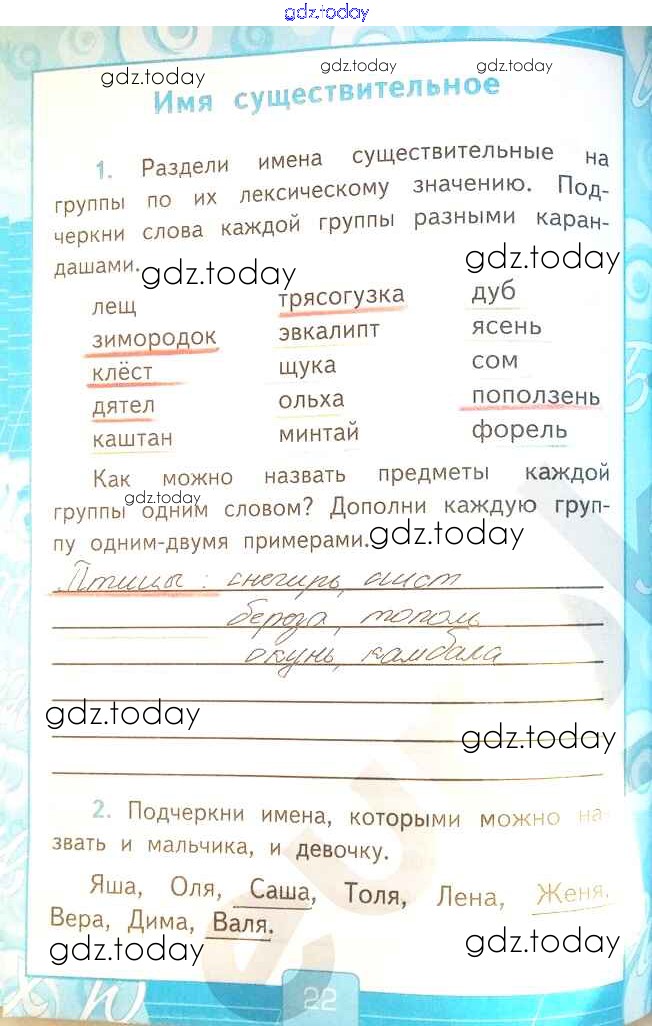 gdz.today
gdz.today gdz.today gdz.today
Имя существительное
1. Раздели имена существительные на
группы по их лексическому значению. Под-
черкни слова каждой группы разными каран-
дашами.
gdz.today gdz.today
лещ трясогузка дуб
зимородок эвкалипт ясень
клёст щука сом
дятел ольха поползень
каштан минтай форель
Как можно назвать предметы каждой
группы одним словом? Дополни каждую груп-
пу одним-двумя примерами.
gdz.today gdz.today
Птицы: снегирь, аист
береза, тополь
окунь, камбала
gdz.today gdz.today
2. Подчеркни имена, которыми можно на-
звать и мальчика, и девочку.
Яша, Оля, Саша, Толя, Лена, Женя,
Вера, Дима, Валя.
gdz.today gdz.today
22